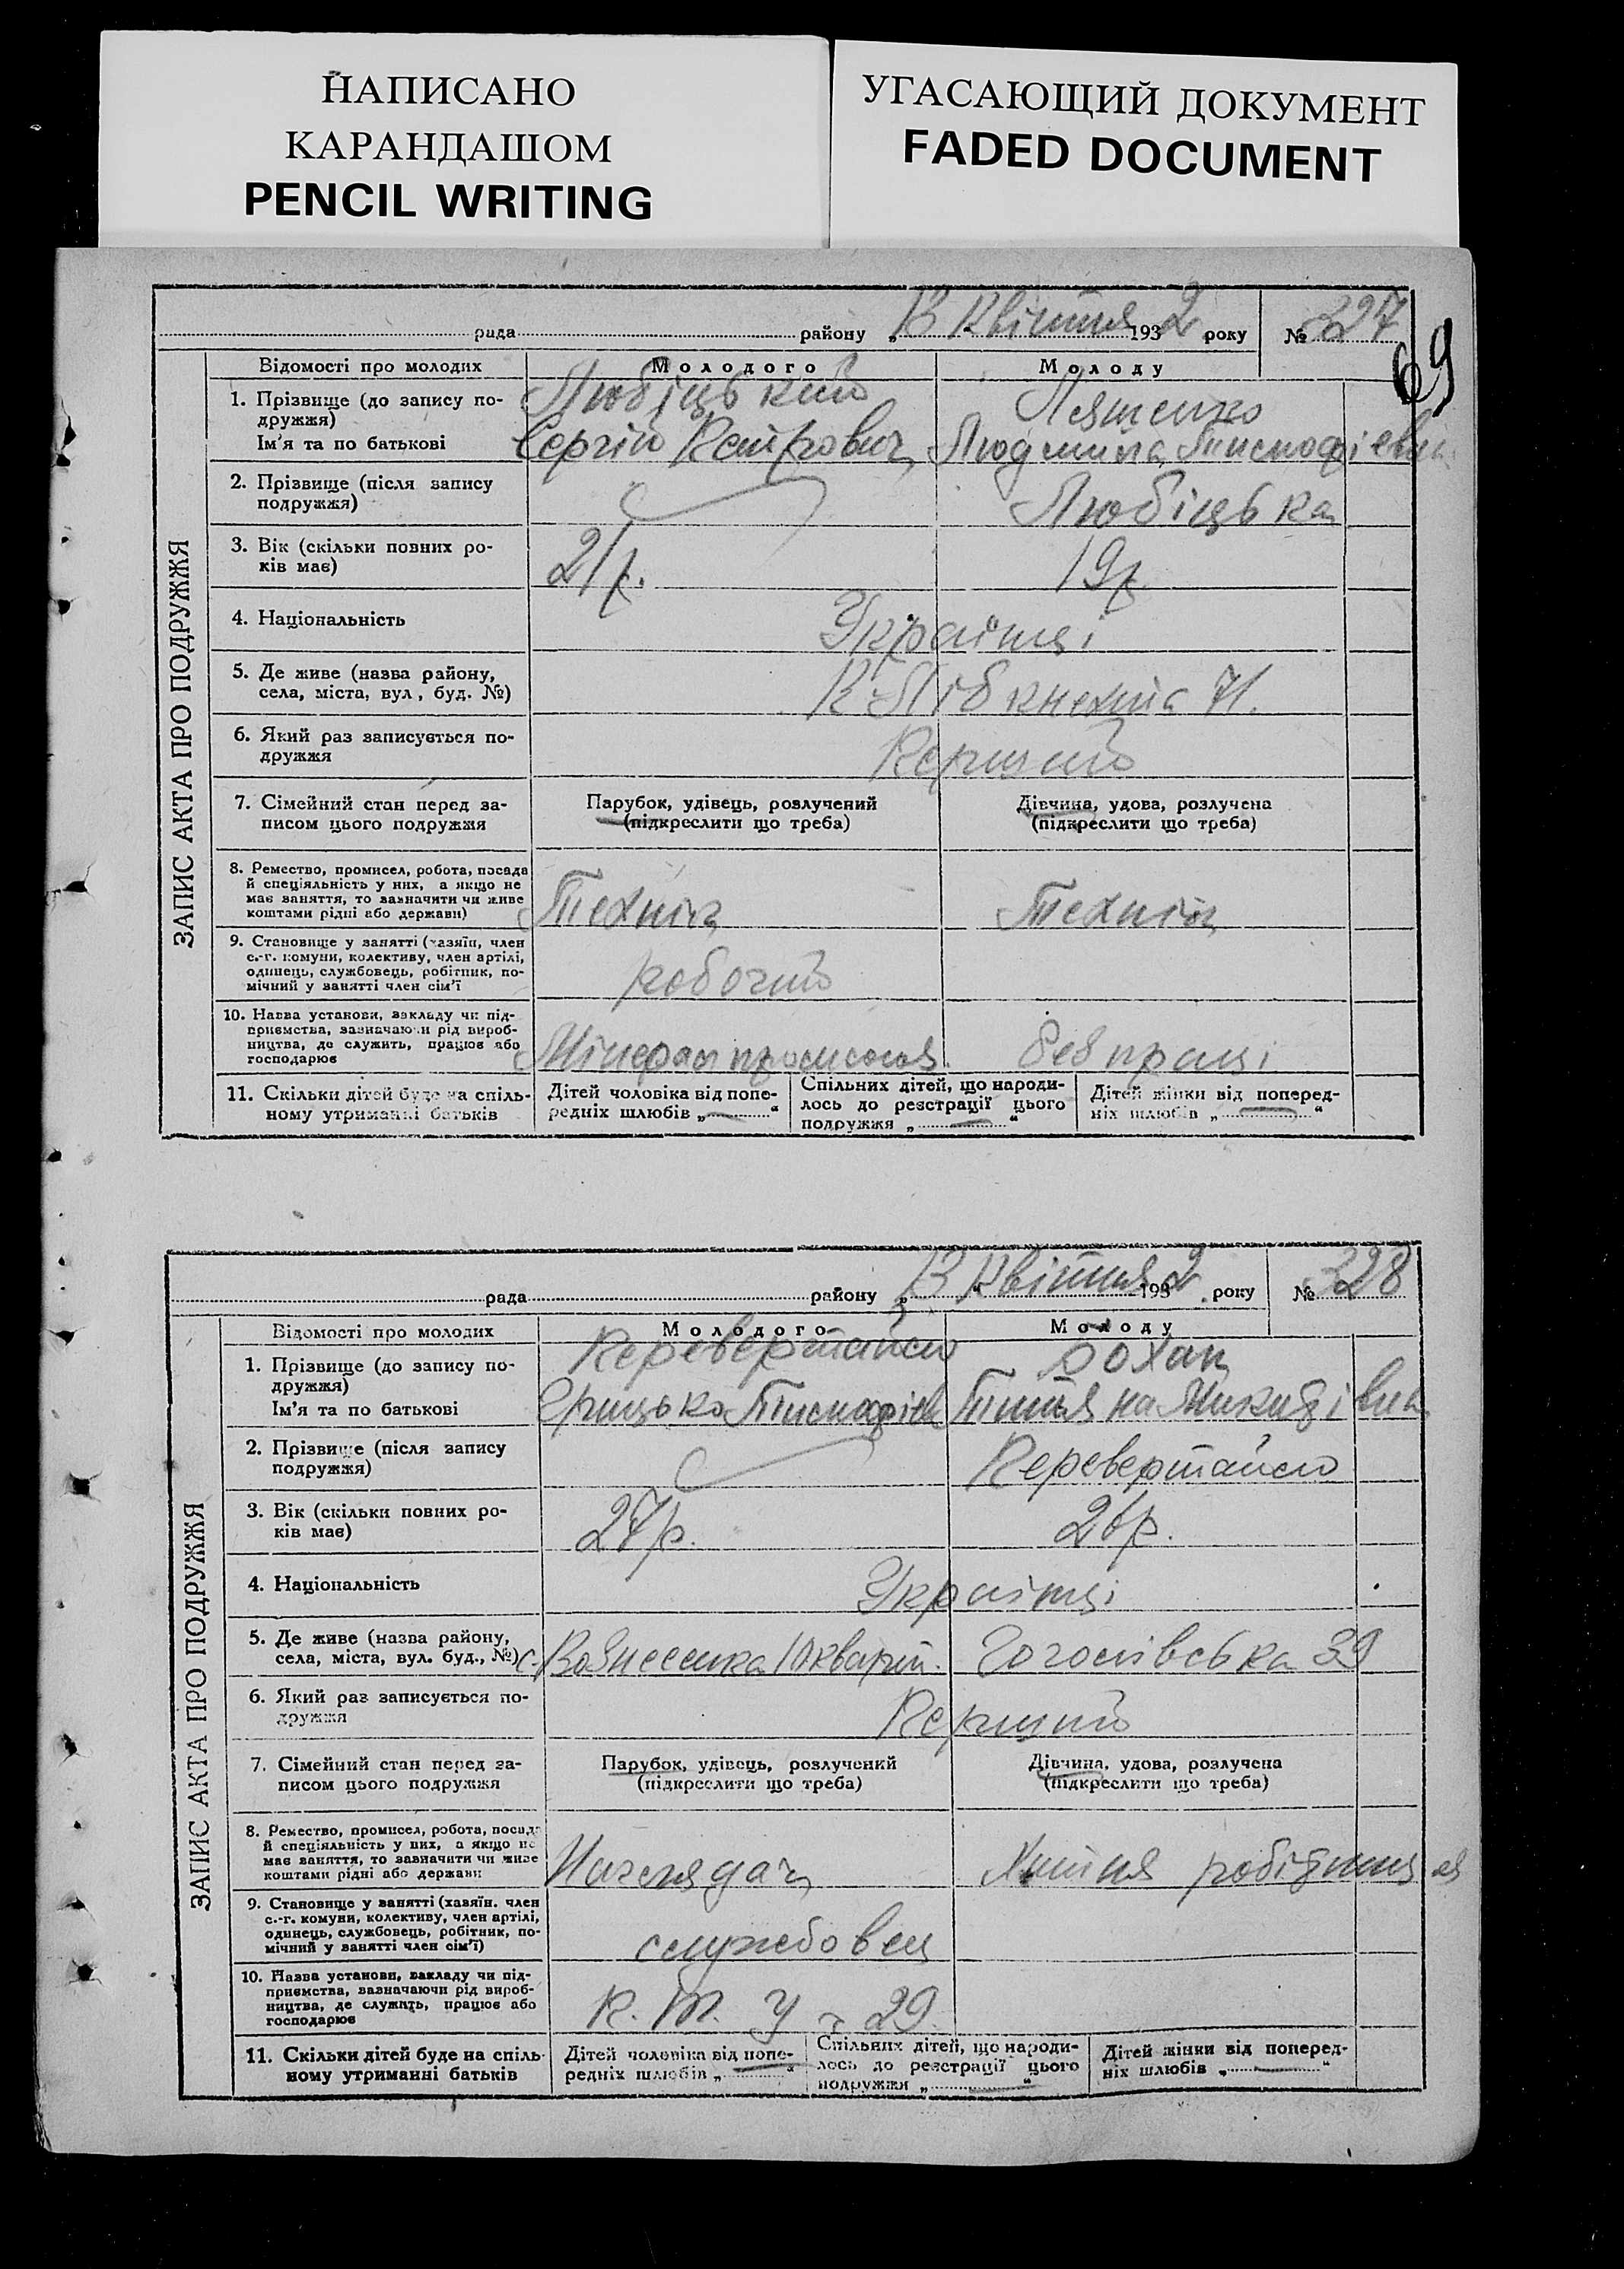 НАПИСАНО
КАРАНДАШОМ
PENCIL WRITING
УГАСАЮЩИЙ ДОКУМЕНТ
FADED DOCUMENT
рада району „13 Квітня 1932 року № 327
69
ЗАПИС АКТА ПРО ПОДРУЖЖЯ
Відомості про молодих Молодого Молоду
1. Прізвище (до запису по-
дружжя)
Ім'я та по батькові
Любіцький
Сергій Петрович
Ляшенко
Людмила
2. Прізвище (після запису
подружжя)
Любіцька
3. Вік (скільки повних ро-
ків має)
21 р. 19 р.
4. Національність
Українці
5. Де живе (назва району,
села, міста, вул, буд. №)
К Лібкнехта 71.
6. Який раз записується по-
дружжя
Перший
7. Сімейний стан перед за-
писом цього подружжя
Парубок, удівець, розлучений
(підкреслити що треба)
Дівчина, удова, розлучена
(підкреслити що треба)
8. Ремество, промисел, робота, посада
й спеціяльність у них, а якщо не
має заняття, то зазначити чи живе
коштами рідні або держави)
Технік Технік
9. Становище у занятті (хазяїн, член
с.-г. комуни, колективу, член артілі,
одинець, службовець, робітник, по-
мічний у занятті член сім'ї
робочий
10. Назва установи, закладу чи під-
приємства, зазначаючи рід вироб-
ництва, де служить, працює або
господарює
без праці
11. Скільки дітей буде на спіль-
ному утриманні батьків
Дітей чоловіка від попе-
редніх шлюбів „ “
Спільних дітей, що народи-
лось до реєстрації цього
подружжя „ “
Дітей жінки від поперед-
ніх шлюбів „ “
рада району „13 Квітня 1932 року № 328
ЗАПИС АКТА ПРО ПОДРУЖЖЯ
Відомості про молодих Молодого Молоду
1. Прізвище (до запису по-
дружжя)
Ім'я та по батькові
Перевертайло
Грицько
Рохан
Микитівна
2. Прізвище (після запису
подружжя)
Перевертайло
3. Вік (скільки повних ро-
ків має)
27 р. 26 р.
4. Національність
Українці
5. Де живе (назва району,
села, міста, вул. буд., №)
с. Вознесенка 10 кварт. Гоголівська 39
6. Який раз записується по-
дружжя
Перший
7. Сімейний стан перед за-
писом цього подружжя
Парубок, удівець, розлучений
(підкреслити що треба)
Дівчина, удова, розлучена
(підкреслити що треба)
8. Ремество, промисел, робота, посада
й спеціяльність у них, а якщо не
має заняття, то зазначити чи живе
коштами рідні або держави
Наглядач Хатня робітниця
9. Становище у занятті (хазяїн, член
с.-г. комуни, колективу, член артілі,
одинець, службовець, робітник, по-
мічний у занятті член сім'ї)
службовец
10. Назва установи, закладу чи під-
приємства, зазначаючи рід вироб-
ництва, де служить, працює або
господарює
11. Скільки дітей буде на спіль-
ному утриманні батьків
Дітей чоловіка від попе-
редніх шлюбів „ “
Спільних дітей, що народи-
лось до реєстрації цього
подружжя „ “
Дітей жінки від поперед-
ніх шлюбів „ “